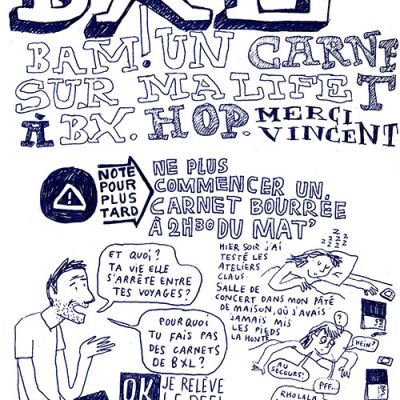 BXL
BAM! UN CARNE
SUR MA LIFE T
À BX. HOP. MERCI
VINCENT
NOTE
POUR
PLUS
TARD
NE PLUS
COMMENCER UN
CARNET BOURRÉE
À 2H30 DU MAT'
ET QUOI?
TA VIE ELLE
S'ARRÊTE ENTRE
TES VOYAGES?
POURQUOI
TU FAIS PAS
DES CARNETS
DE BXL?
OK
JE RELÈVE
LE DÉFI
HIER SOIR J'AI
TESTÉ LES
ATELIERS
CLAUS.
SALLE DE
CONCERT DANS MON PÂTÉ
DE MAISON, OÙ J'AVAIS
JAMAIS MIS
LES PIEDS
LA HONTE
ZZZZ
?
HEIN?
AU
SECOURS!
PFF..
RHOLALA